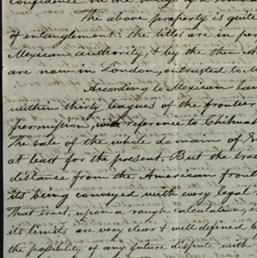 confidence in the
The above property is quite
of entanglement: the titles are in per
Mexican authority, & by the then A
are now in London, entrusted to M
According to Mexican law
within thirty leagues of the frontier
permission, with reference to Chihuah
The sale of the whole domain of E
at least for the present. But the trac
distance from the American front
its being conveyed with every legal
That tract, upon a rough calculation,
its limits are very clear & well defined &
the possibility of any future dispute with